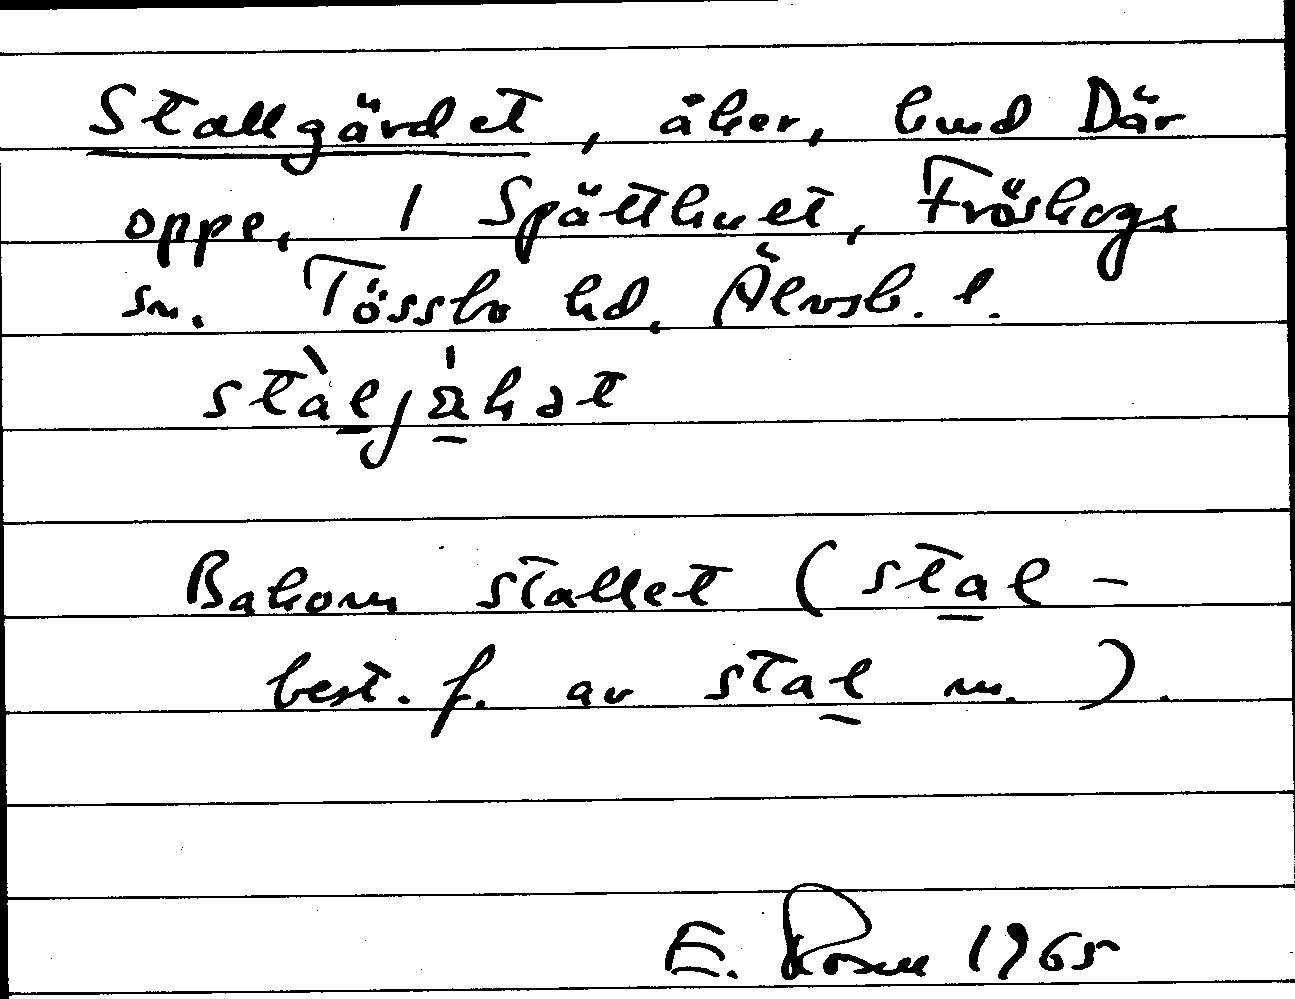 Stallgärdet, åker, hmd Där
oppe, 1 Spätthult, Fröskogs
sn. Tössbo hd. Älvsb. l.
stàljákət
Bakom stallet (stal -
best. f. av stal m.).
E. Rosen 1965